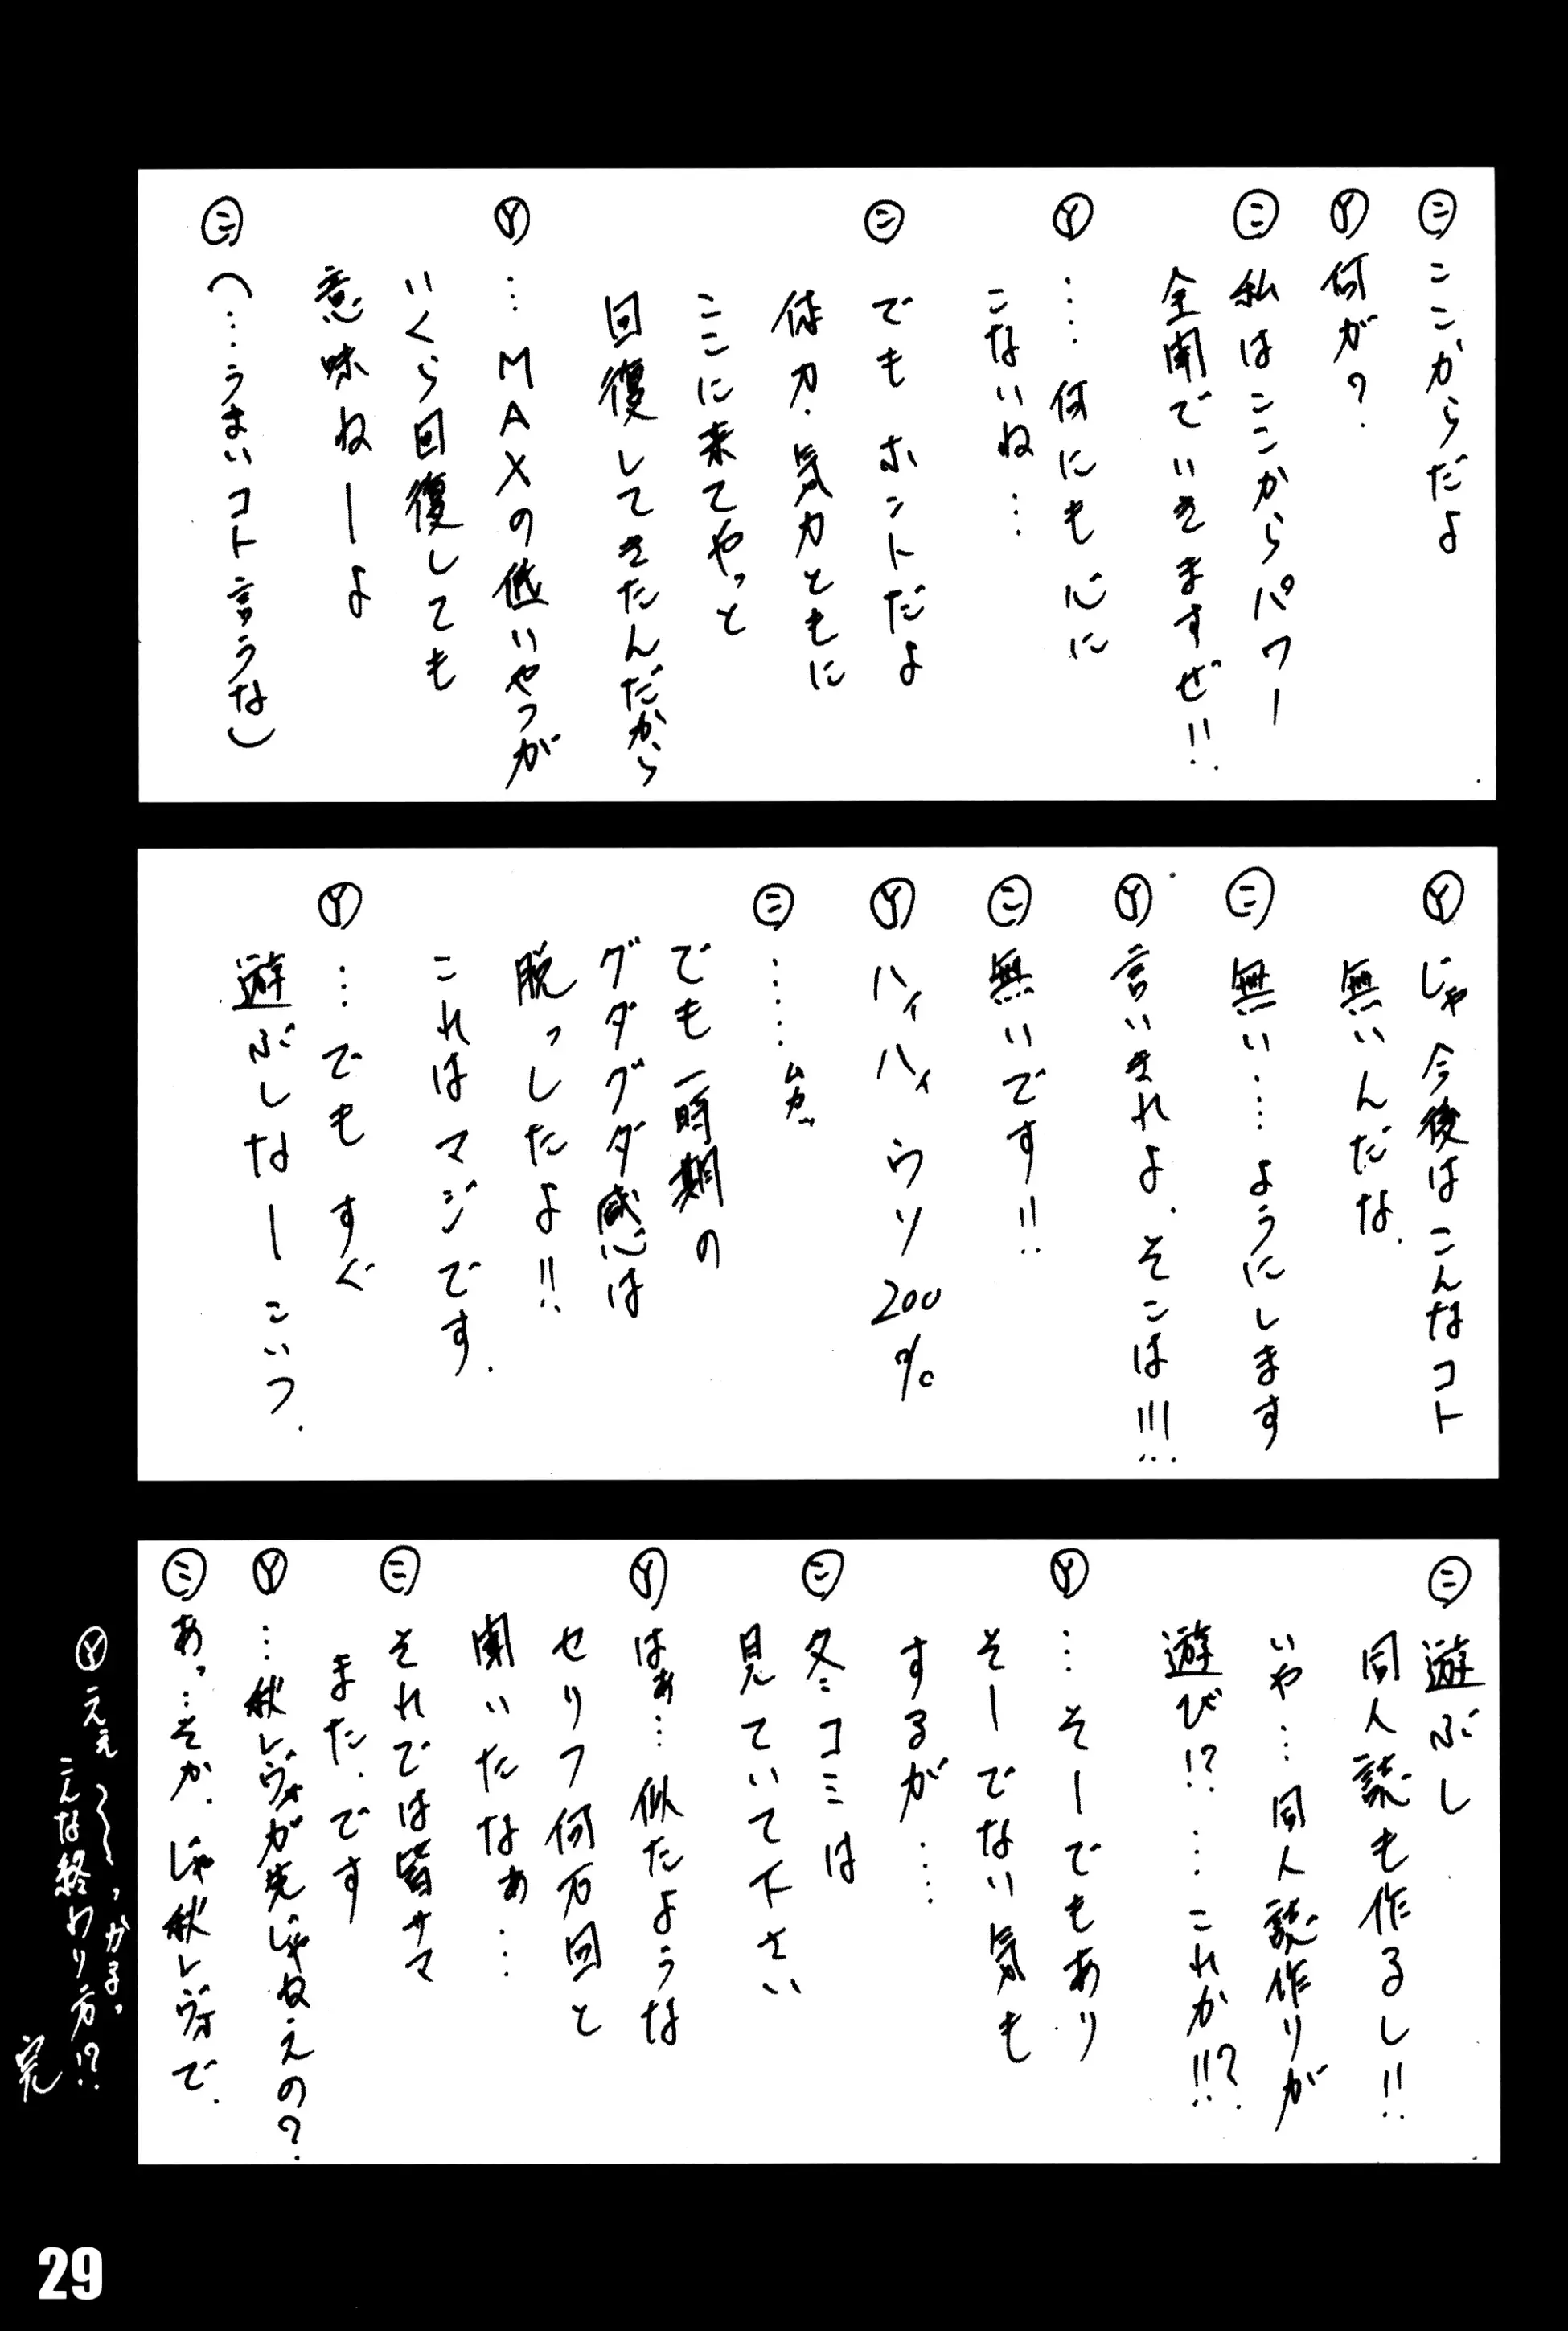 ㊁ここからだよ
Ⓨ何が?
㊁私はここからパワー
全開でいきますぜ!!
Ⓨ…何にも心に
こないね…
㊁でもホントだよ
体力・気力ともに
ここに来てやっと
回復してきたんだから
Ⓨ…MAXの低いやつが
いくら回復しても
意味ねーよ
㊁(…うまいコト言うな)
Ⓨじゃ今後はこんなコト
無いんだな.
㊁無い……ようにします
Ⓨ言いきれよ.そこは!!!
㊁無いです!!
Ⓨハイハイ ウソ200%
㊁……ムカッ
でも一時期の
グダグダ感は
脱っしたよ!!
これはマジです.
Ⓨ…でも すぐ
遊ぶしなー こいつ.
㊁遊ぶし
同人誌も作るし!!
いや…同人誌作りが
遊び!?……これか!!?
Ⓨ…そーでもあり
そーでない気も
するが……
㊁冬コミは
見ていて下さい
Ⓨはぁ…似たような
セリフ何万回と
聞いたなぁ…
㊁それでは皆サマ
また.です
Ⓨ…秋レヴォが先じゃねえの?
㊁あっ…そか.じゃ秋レヴォで.
Ⓨええ〜〜っ,かよ,
こんな終わり方!?
完
29